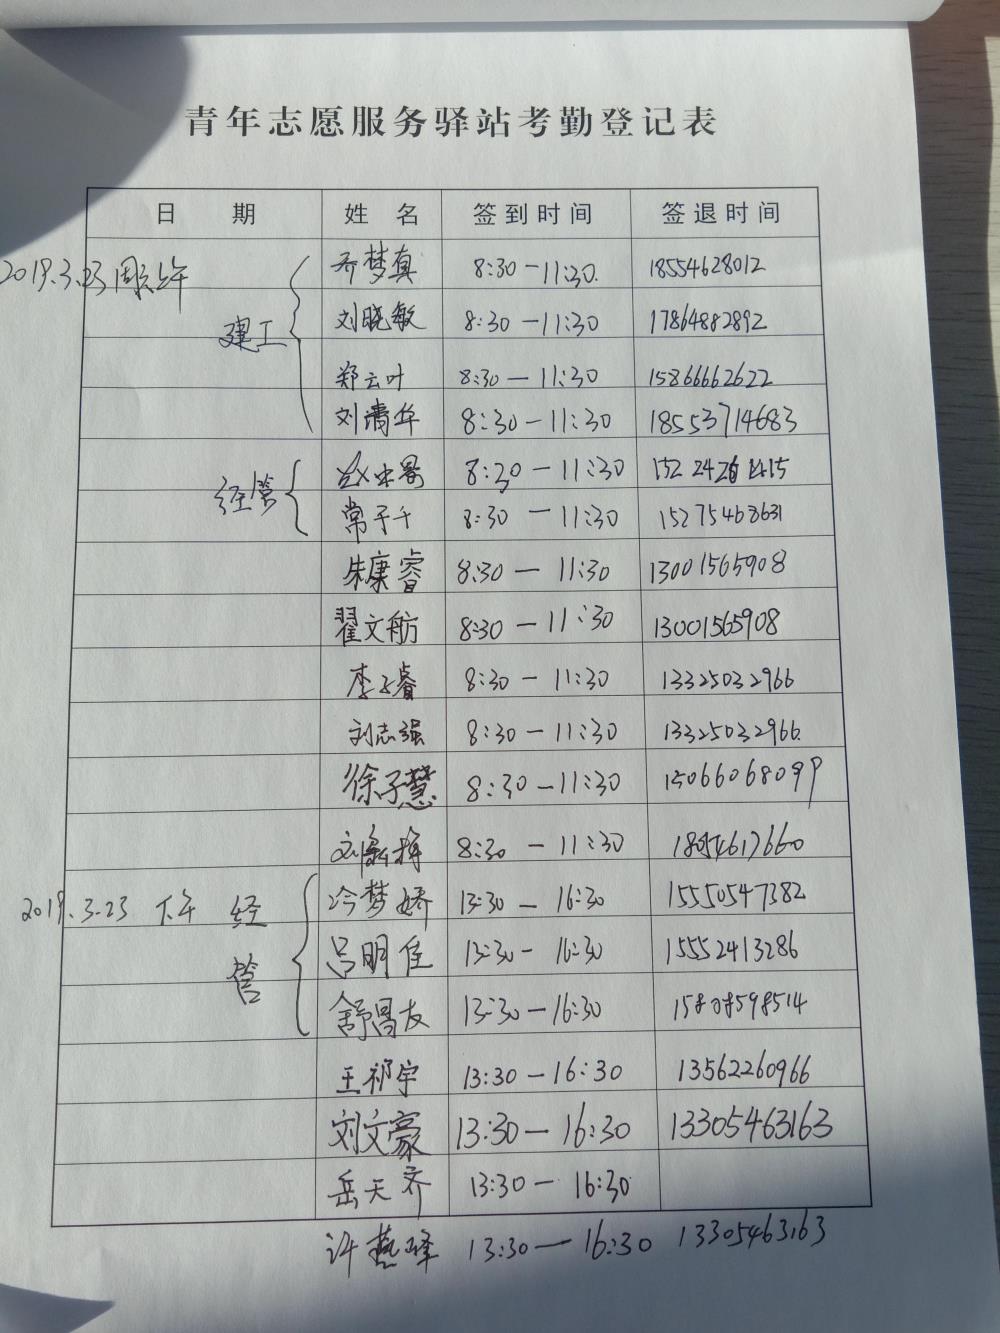 青年志愿服务驿站考勤登记表
日 期 姓 名 签到时间 签退时间
2019.3.23 周六上午 乔梦真 8:30-11:30. 18554628012
建工 刘晓敏 8:30-11:30 17864882892
郑云叶 8:30-11:30 15866662622
刘清华 8:30-11:30 18553714683
经管 8:30-11:30 152242
常子千 8:30-11:30 15275468631
朱康睿 8:30-11:30 13001565908
翟文舫 8:30-11:30 13001565908
李子睿 8:30-11:30 13325032966
刘志强 8:30-11:30 13325032966.
徐子慧 8:30-11:30 15066068099
刘新 8:30-11:30 18654617660
2019.3.23 下午 经 冷梦娇 13:30-16:30 15550547382
管 吕明佳 13:30-16:30 15552413286
舒昌友 13:30-16:30
王祁宇 13:30-16:30 13562260966
刘文豪 13:30-16:30 13305463163
岳天齐 13:30-16:30
许 峰 13:30-16:30 13305463163